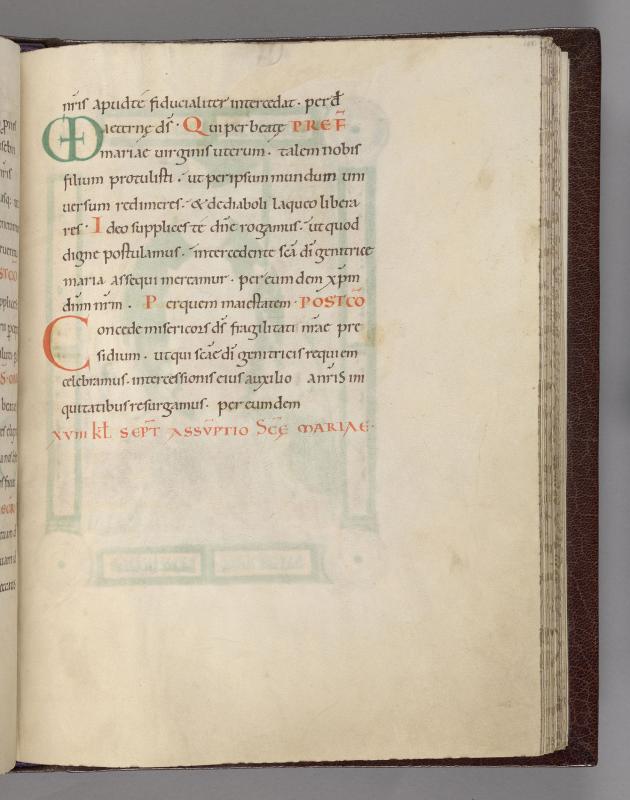 nr̄is apud té fiducialiter intercedat · per d̄
VD aeternę ds̄ · Qui per beatę PREF̄
mariae virginis uterum · talem nobis
filium protulisti · ut per ipsum mundum uni
uersum redimeres · & de diaboli laqueo libera
res · Ideo supplices té dn̄e rogamus · ut quod
digne postulamus · intercedente sc̄a dī genitrice
maria assequi mereamur · per eum dem xp̄m
dn̄m nr̄m · Per quem maiestatem · POSTCŌ
Concede misericors ds̄ fragilitati nr̄ae pre
sidium · ut qui sc̄ae dī genitricis requiem
celebramus · intercessionis eius auxilio a nr̄is in
iquitatibus resurgamus · per eum dem
XVIII kl̄ SEPT̄ ASSVPTIO SC̄E MARIAE ·